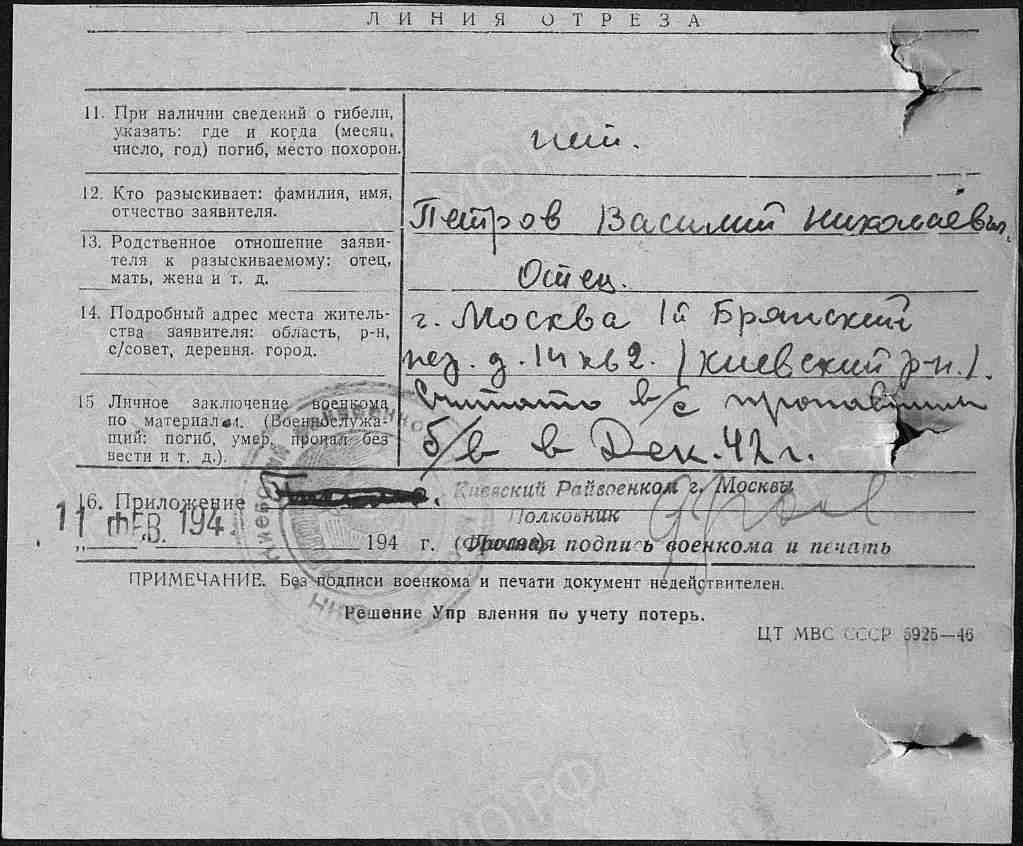 ЛИНИЯ ОТРЕЗА
11. При наличии сведений о гибели,
указать: где и когда (месяц,
число, год) погиб, место похорон.
нет.
12. Кто разыскивает: фамилия, имя,
отчество заявителя.
Петров Василий Николаевич.
13. Родственное отношение заяви-
теля к разыскиваемому: отец,
мать, жена и т. д.
Отец.
14. Подробный адрес места житель-
ства заявителя: область, р-н,
с/совет, деревня. город.
г. Москва 1й Брянский
пер. д. 14 кв 2. (Киевский р-н.).
15 Личное заключение военкома
по материалам. (Военнослужа-
щий: погиб, умер, пропал без
вести и т. д.).
Считать в/с пропавшим
б/в в Дек. 42 г.
16. Приложение
Киевский Райвоенком г. Москвы
Полковник
11 ФЕВ. 194
194 г. подпись военкома и печать
ПРИМЕЧАНИЕ. Без подписи военкома и печати документ недействителен.
Решение Упр вления по учету потерь.
ЦТ МВС СССР 5925—46
МО.РФ